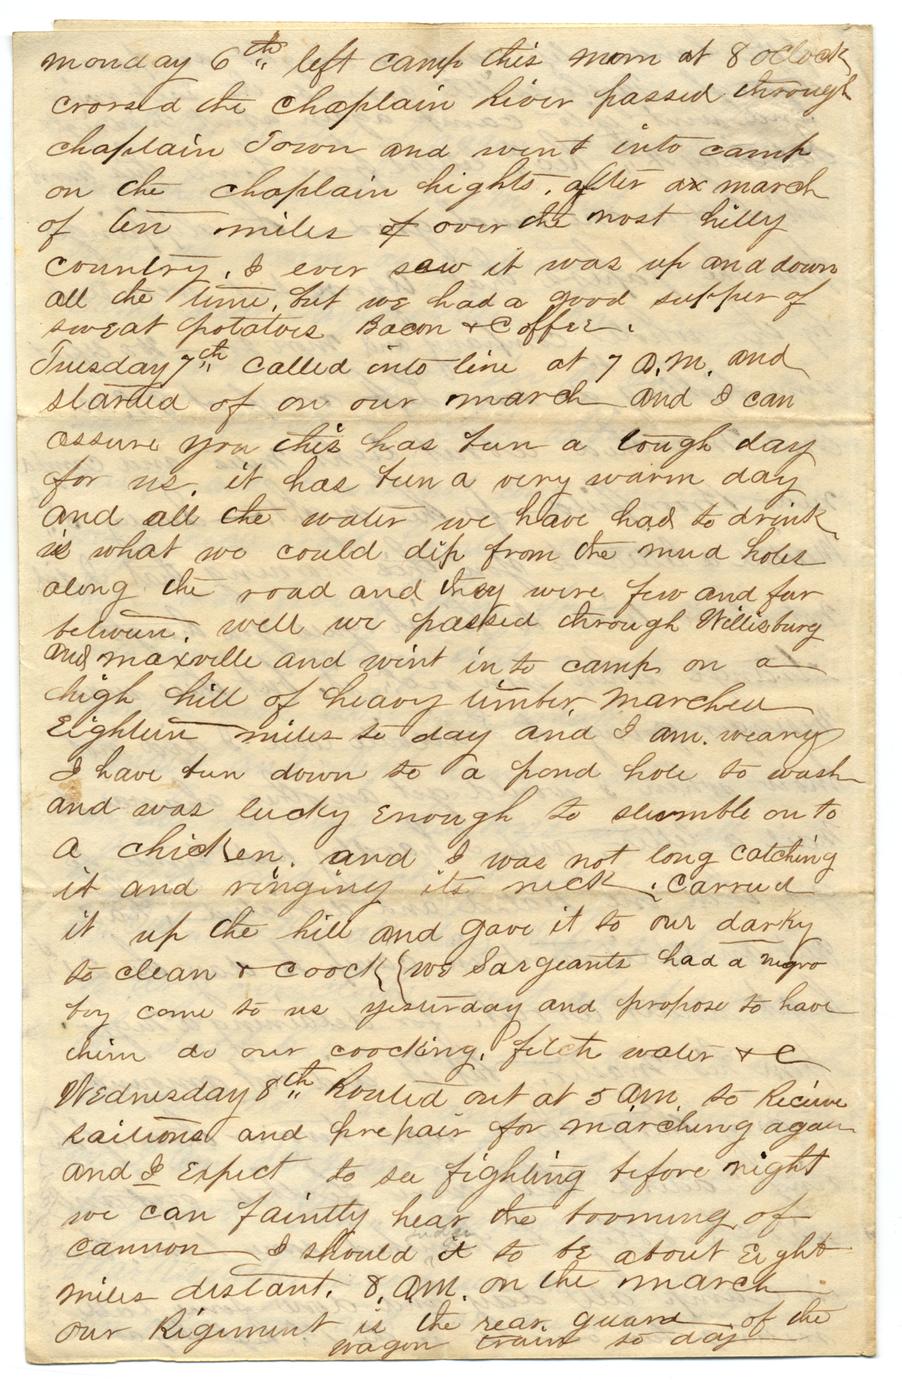 monday 6th left camp this morn at 8 oclock
crossed the Chaplain River passed through
chaplain Town and went into camp
on the chaplain hights. after a march
of ten miles over the most hilly
country. I ever saw it was up and down
all the time, but we had a good supper of
sweat potatoes Bacon & Coffee.
Tuesday 7th Called into line at 7 A.M. and
started of on our march and I can
assure you this has bun a tough day
for us. it has bun a very warm day
and all the water we have had to drink
is what we could dip from the mud holes
along the road and they were few and far
between. well we passed through Willisburg
and maxville and wint into camp on a
high hill of heavy timber. marched
Eighteen miles to day and I am. weary
I have bun down to a pond hole to wash
and was lucky Enough to stumble on to
a chicken. and I was not long catching
it and ringing its neck. Carried
it up the hill and gave it to our darky
to clean & coock {we Sargeants had a negro
boy come to us yesterday and propose to have
him do our coocking, fetch water & C
Wednesday 8th Routed out at 5 A.M. to Recieve
Raitions and prepair for marching again
and I Expect to see fighting before night
we can faintly hear the booming of
cannon I should judge it to be about Eight
miles distant. 8. A.M. on the march
our Rigiment is the rear guard of the
wagon train to day